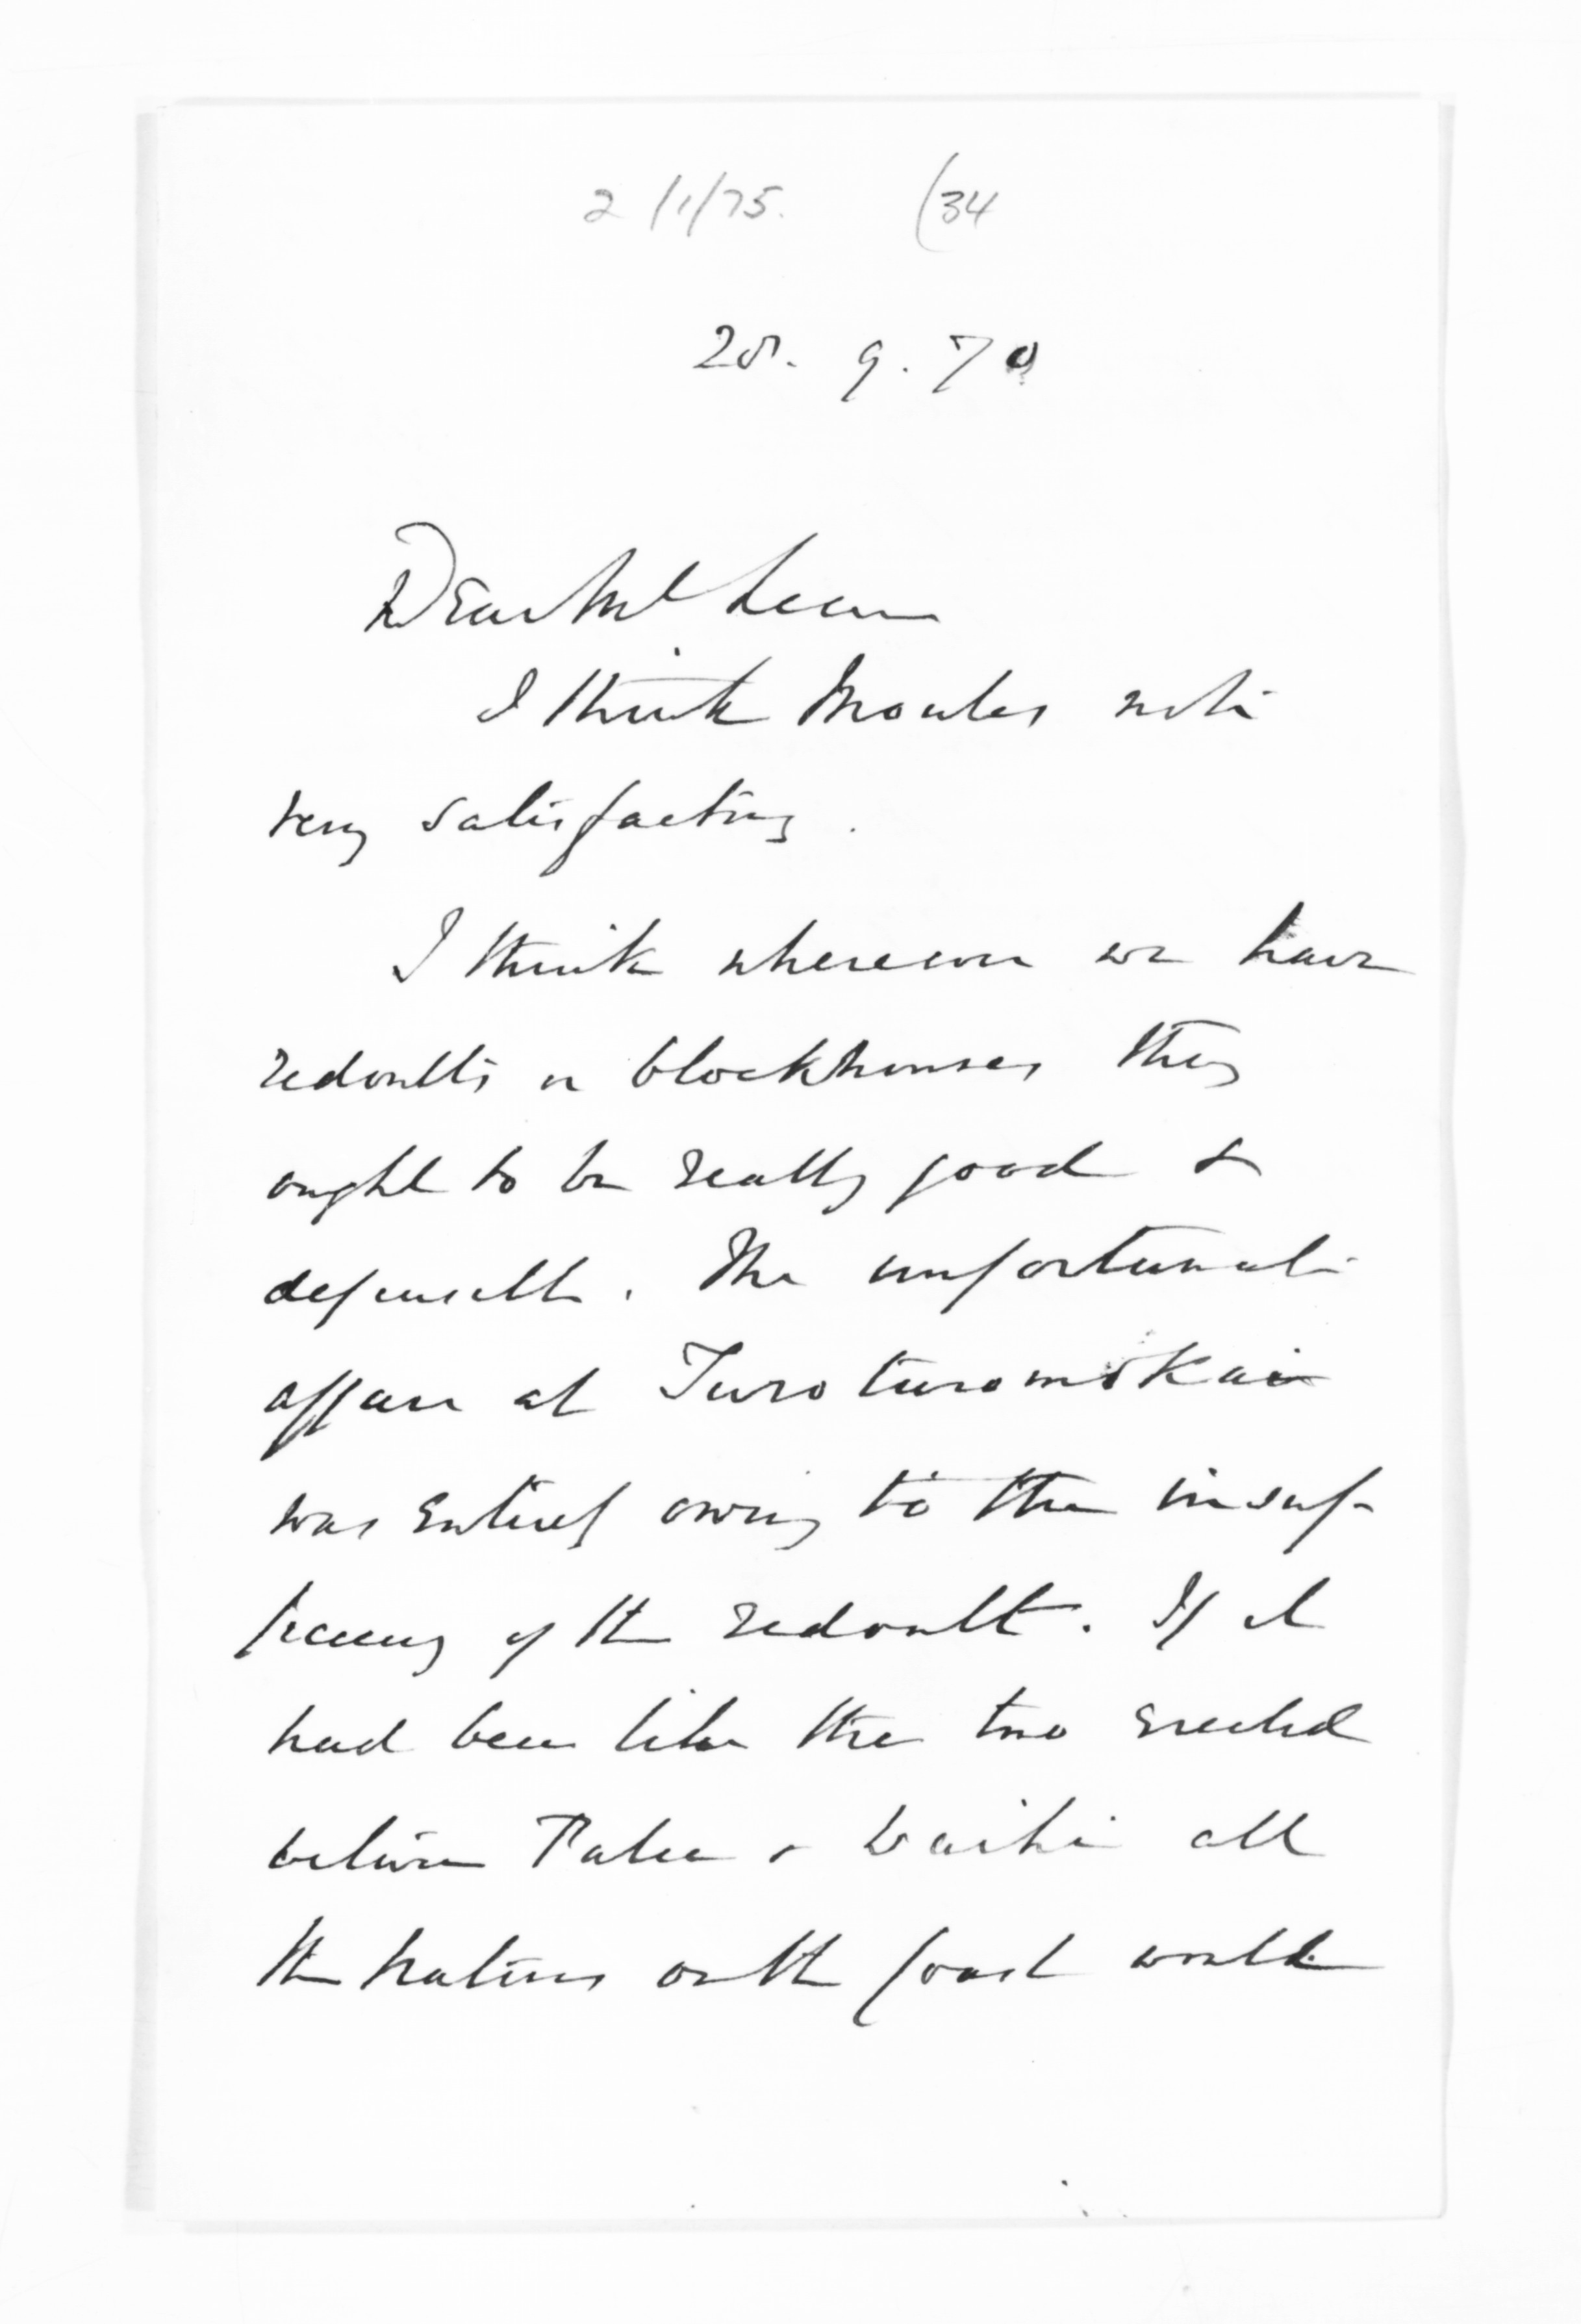 2/1/75. (34
28. 9. 70
Dear McLean
I think Moules note
very satisfactory.
I think wherever we have
redoubts or blockhouses they
ought to be really good &
defensible. The unfortunate
affair at Turoturomokai
was entirely owing to the insuf-
ficiency of the redoubt. If it
had been like the two erected
between Patea & Waihi all
the natives on the Coast would